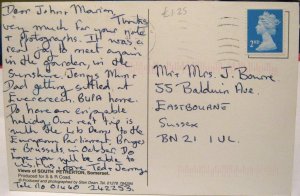 Dear John & Marion, Thanks
very much for your note
& photographs. It was a
real joy to meet again
in the garden, in the
sunshine. Jeny's Mum &
Dad getting settled at
Evercreech, BUPA home.
Do have an enjoyable
holiday. Our next trip is
with the Lib Dems to the
European Parliament, Bruges
& Brussels, in October. Do
hope you will be able to
Love from us, Ted & Jenny
Views of SOUTH PETHERTON, Somerset.
Produced for S & N Coast.
Tele No 01460 242255
£1.25
2ND
Mr & Mrs. J. Bourne
55 Baldwin Ave.
EASTBOURNE
SUSSEX
BN21 1UL.